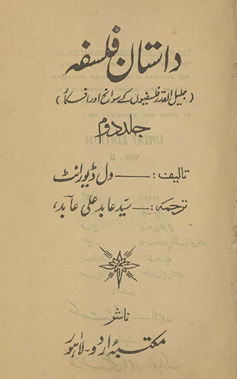 داستانِ فلسفہ
(جلیل القدر فلسفیوں کے سوانح اور افکار)
جلد دوم
تالیف:— ول ڈیورانٹ
ترجمہ:— سیّد عابد علی عابدؔ
ناشر
مکتبۂ اردو - لاہور